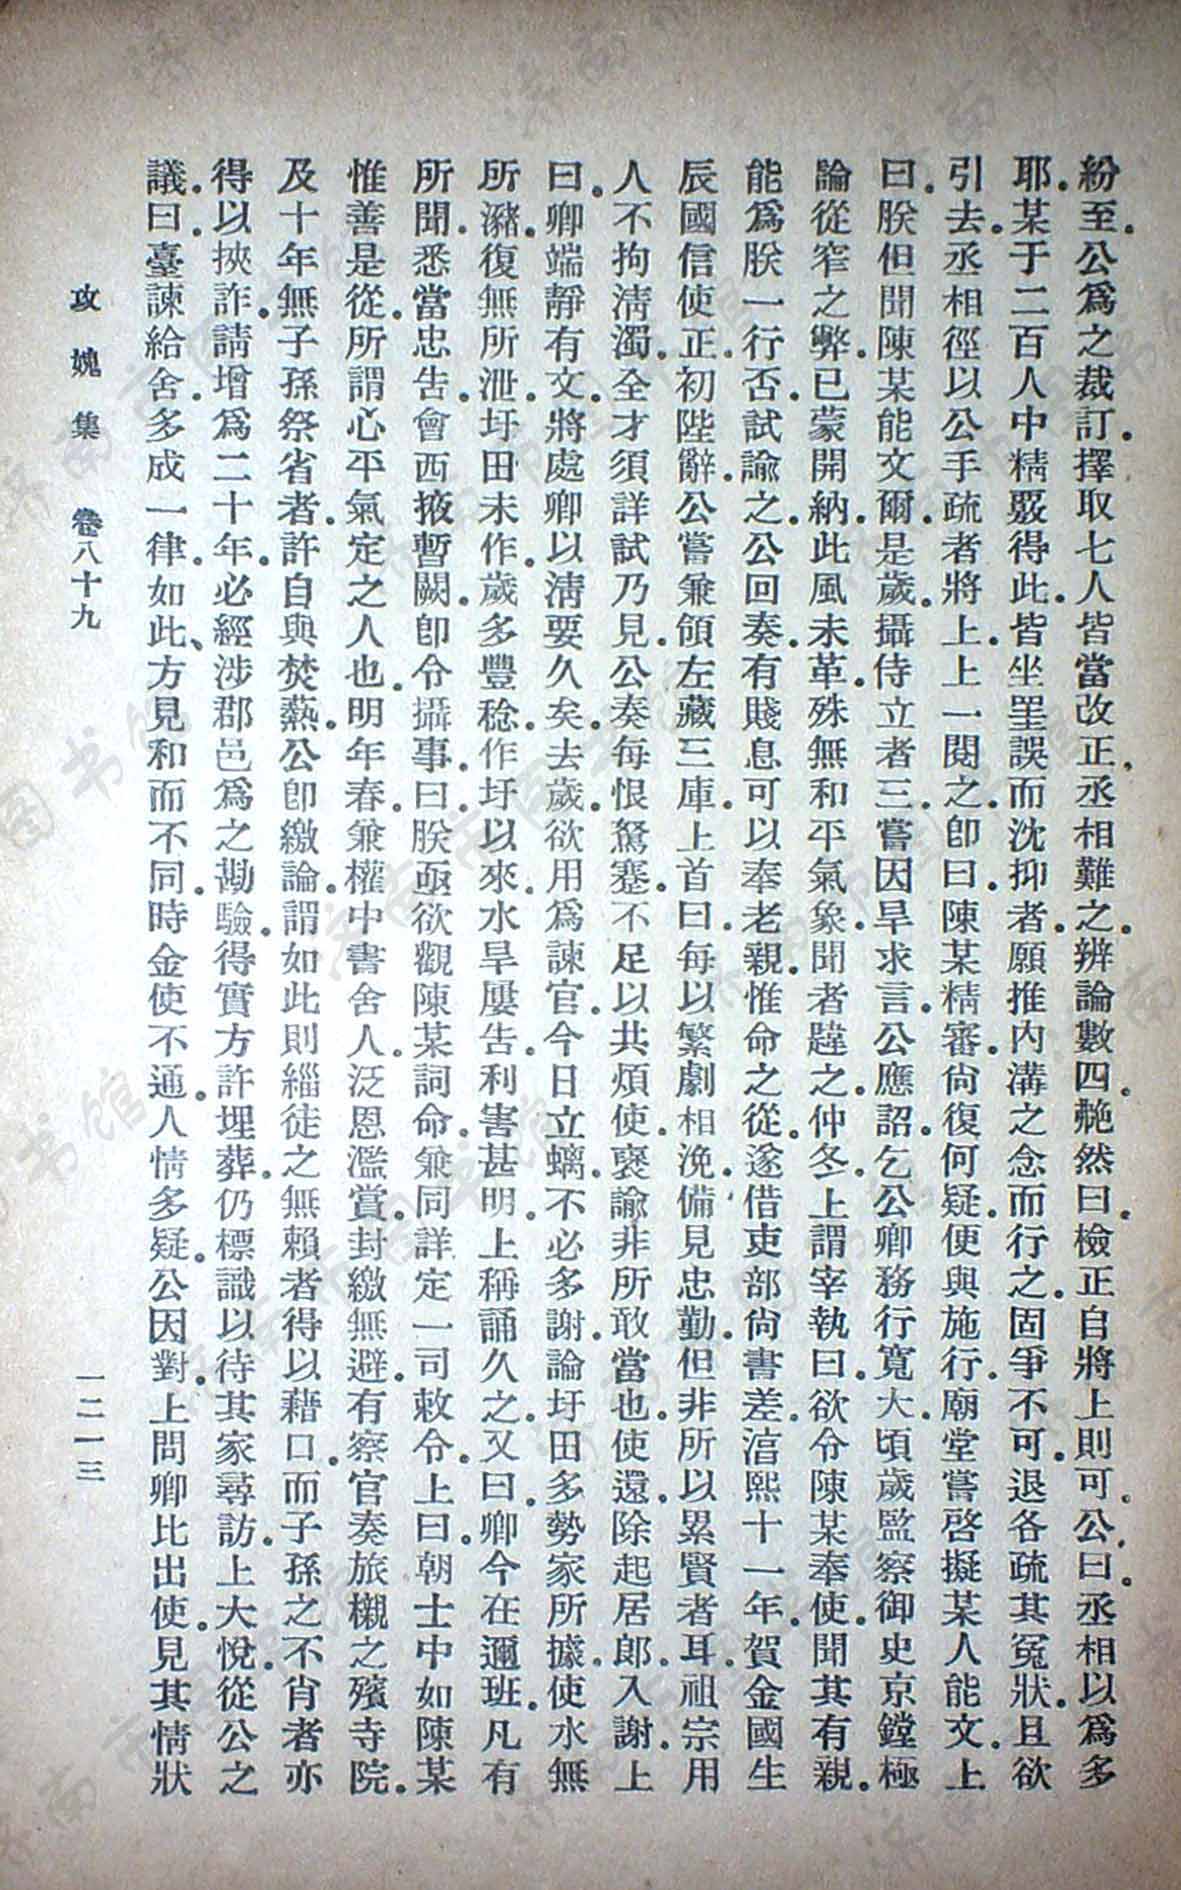 紛至。公爲之裁訂。擇取七人皆當改正。丞相難之。辨論數四。艴然曰。檢正自將上則可。公曰。丞相以爲多
耶。某于二百人中精覈得此。皆坐罣誤而沈抑者。願推內溝之念而行之。固爭不可。退各疏其冤狀。且欲
引去。丞相徑以公手疏者將上。上一閱之。卽曰。陳某精審。尙復何疑。便與施行。廟堂嘗啓擬某人能文。上
曰。朕但聞陳某能文爾。是歲。攝侍立者三。嘗因旱求言。公應詔。乞公卿務行寬大。頃歲監察御史京鏜極
論從窄之弊。已蒙開納。此風未革。殊無和平氣象。聞者韙之。仲冬。上謂宰執曰。欲令陳某奉使。聞其有親。
能爲朕一行否。試諭之。公回奏。有賤息可以奉老親。惟命之從。遂借吏部尙書。差湻熙十一年。賀金國生
辰國信使。正初陛辭。公嘗兼領左藏三庫。上首曰。每以繁劇相浼。備見忠勤。但非所以累賢者耳。祖宗用
人不拘淸濁。全才須詳試乃見。公奏每恨駑蹇。不足以共煩使。褒諭非所敢當也。使還。除起居郞。入謝。上
曰。卿端靜有文。將處卿以淸要久矣。去歲欲用爲諫官。今日立螭。不必多謝。論圩田多勢家所據。使水無
所瀦。復無所泄。圩田未作。歲多豐稔。作圩以來。水旱屢告。利害甚明。上稱誦久之。又曰。卿今在邇班。凡有
所聞。悉當忠吿。會西掖暫闕。卽令攝事。曰。朕亟欲觀陳某詞命。兼同詳定一司敕令。上曰。朝士中如陳某
惟善是從。所謂心平氣定之人也。明年春。兼權中書舍人。泛恩濫賞。封繳無避。有察官奏旅櫬之殯寺院。
及十年無子孫祭省者。許自與焚爇。公卽繳論。謂如此則緇徒之無賴者得以藉口。而子孫之不肖者亦
得以挾詐。請增爲二十年。必經涉郡邑。爲之勘驗。得實方許埋葬。仍標識以待其家尋訪。上大悅。從公之
議。曰。臺諫給舍。多成一律。如此、方見和而不同。時金使不通。人情多疑。公因對。上問卿比出使。見其情狀
攻媿集 卷八十九 一二一三